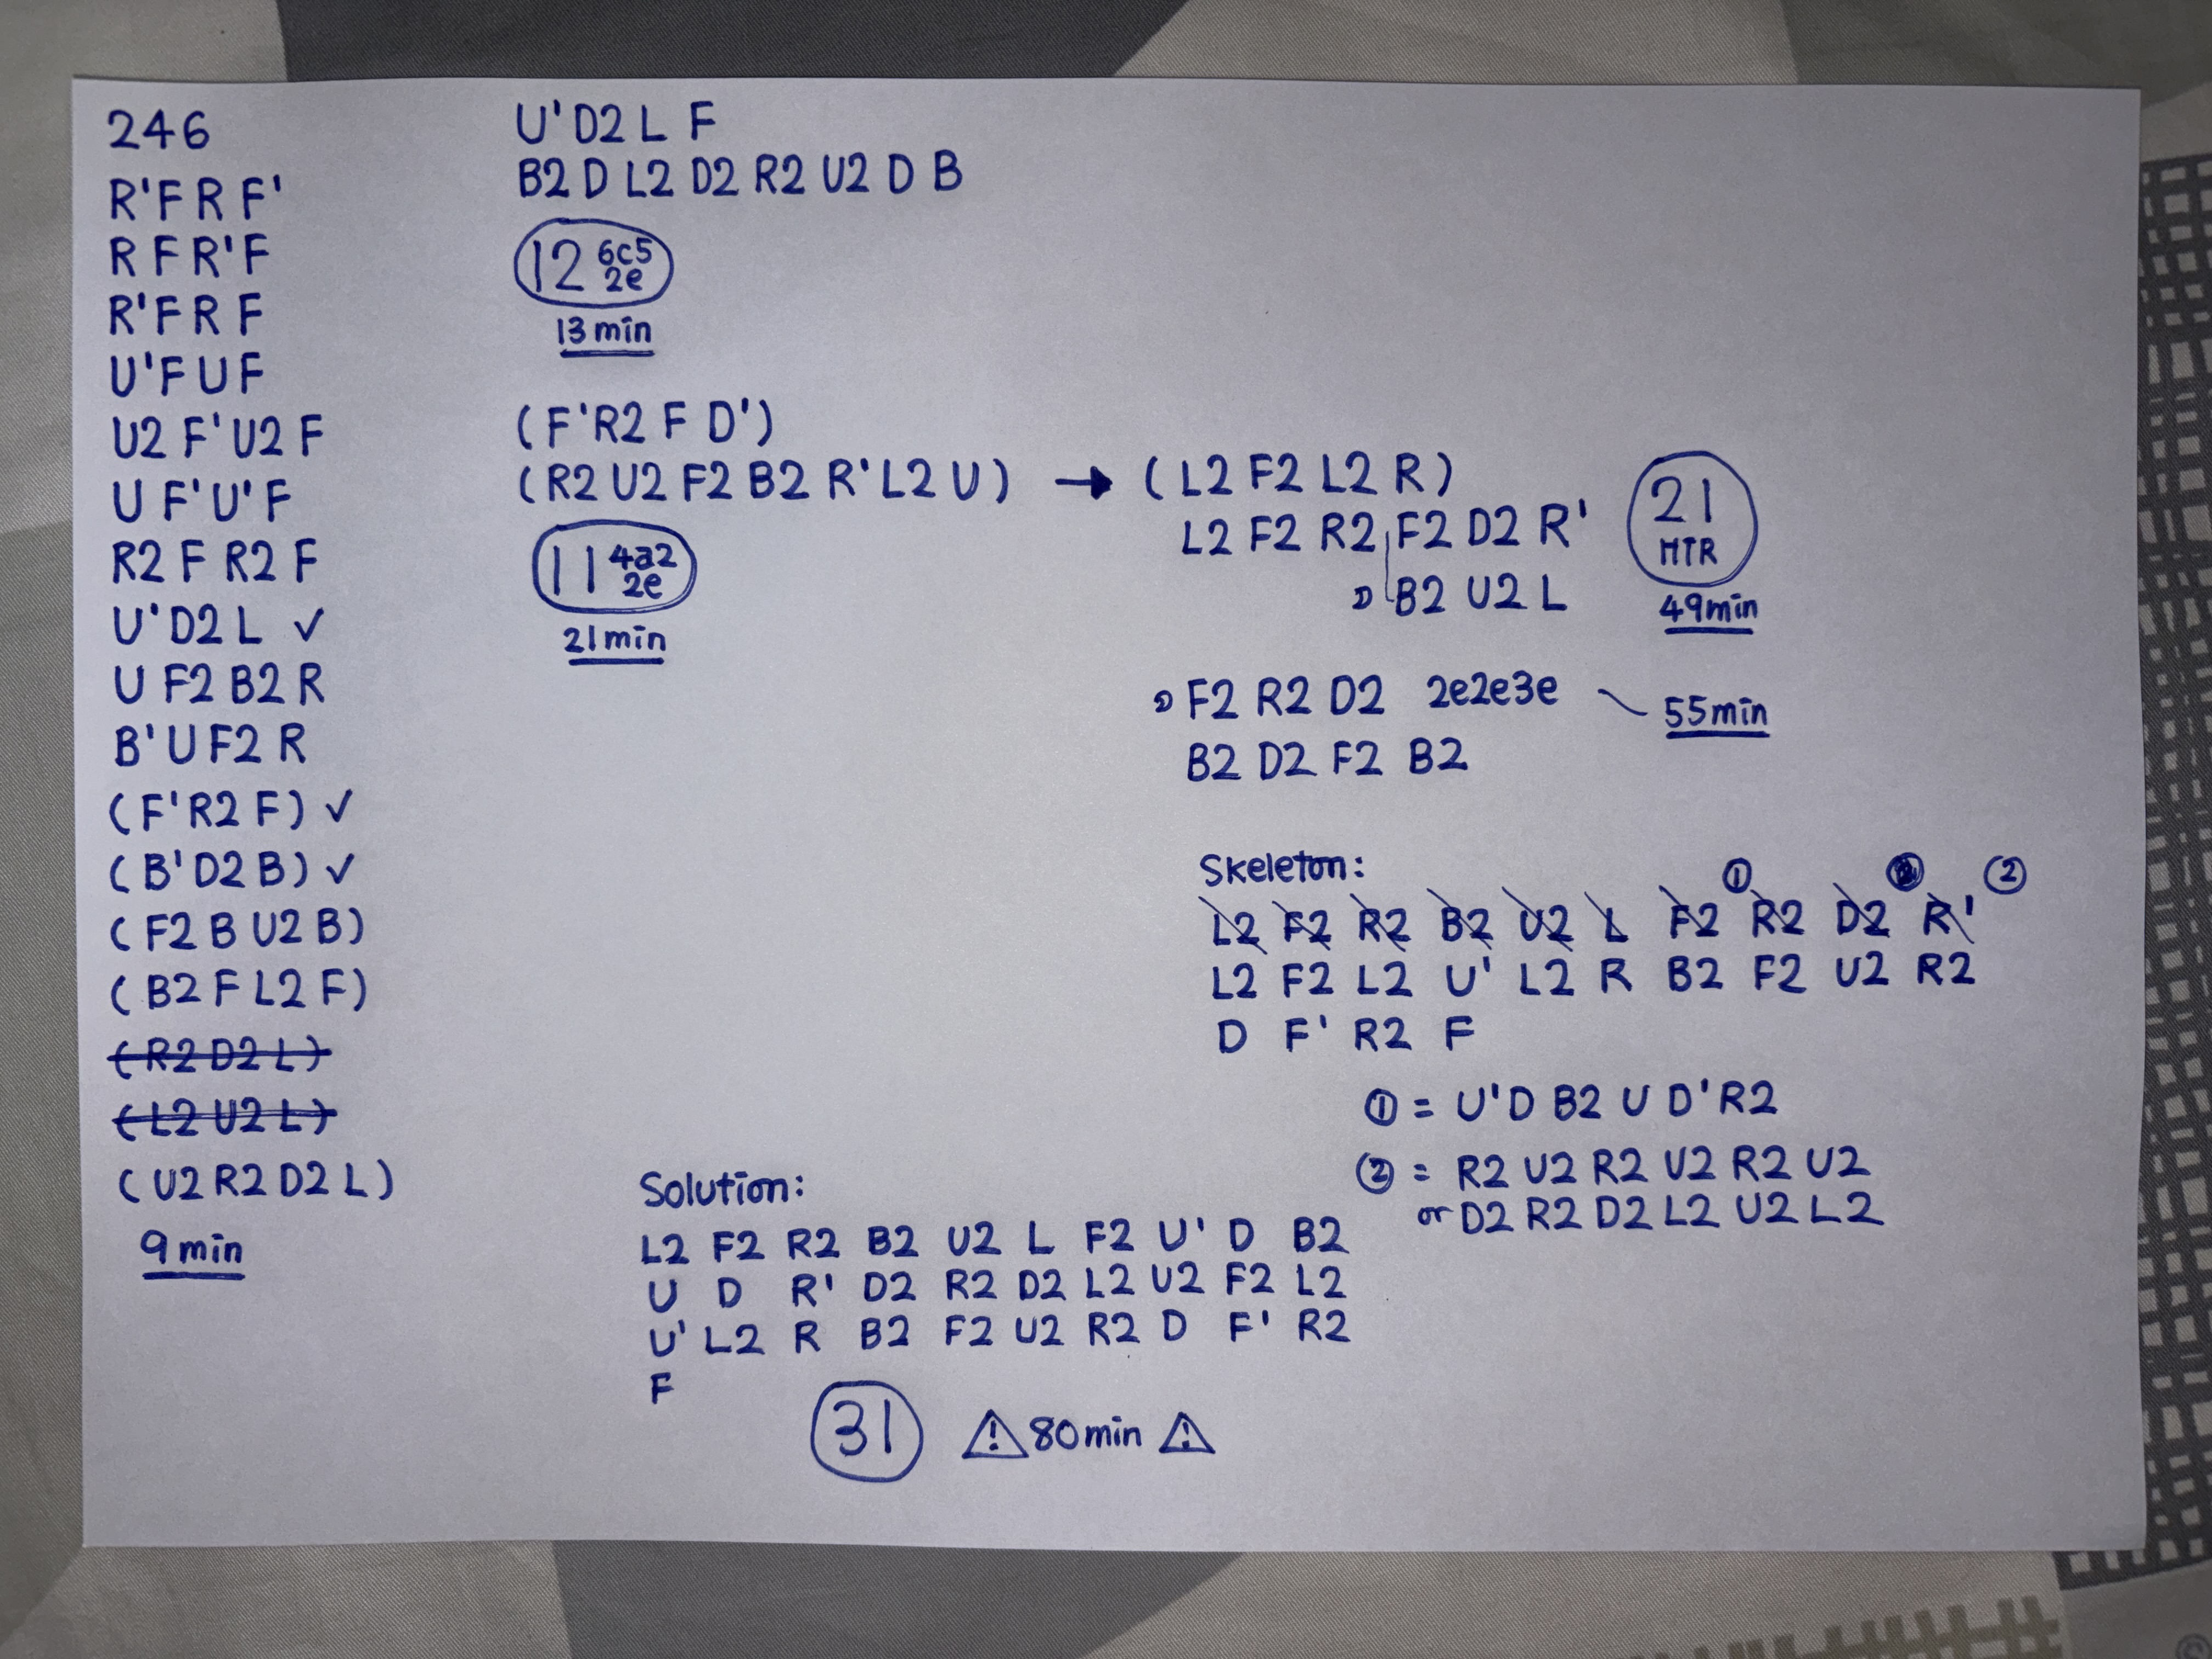 246
R'F R F'
R F R'F
R'F R F
U'F U F
U2 F'U2 F
U F'U'F
R2 F R2 F
U'D2 L ✓
U F2 B2 R
B'U F2 R
(F'R2 F) ✓
(B'D2 B) ✓
(F2 B U2 B)
(B2 F L2 F)
(R2 D2 L)
(L2 U2 L)
(U2 R2 D2 L)
9 min
U'D2 L F
B2 D L2 D2 R2 U2 D B
12 6c5 2e
13 min
(F'R2 F D')
(R2 U2 F2 B2 R'L2 U) → (L2 F2 L2 R)
11 4a2 2e
21 min
L2 F2 R2 F2 D2 R'
B2 U2 L
21 HTR
49 min
F2 R2 D2 2e2e3e
55 min
B2 D2 F2 B2
Skeleton:
① ②
L2 F2 R2 B2 U2 L F2 R2 D2 R'
L2 F2 L2 U' L2 R B2 F2 U2 R2
D F' R2 F
① = U'D B2 U D'R2
② = R2 U2 R2 U2 R2 U2
or D2 R2 D2 L2 U2 L2
Solution:
L2 F2 R2 B2 U2 L F2 U' D B2
U D R' D2 R2 D2 L2 U2 F2 L2
U' L2 R B2 F2 U2 R2 D F' R2
F
31 ⚠ 80 min ⚠